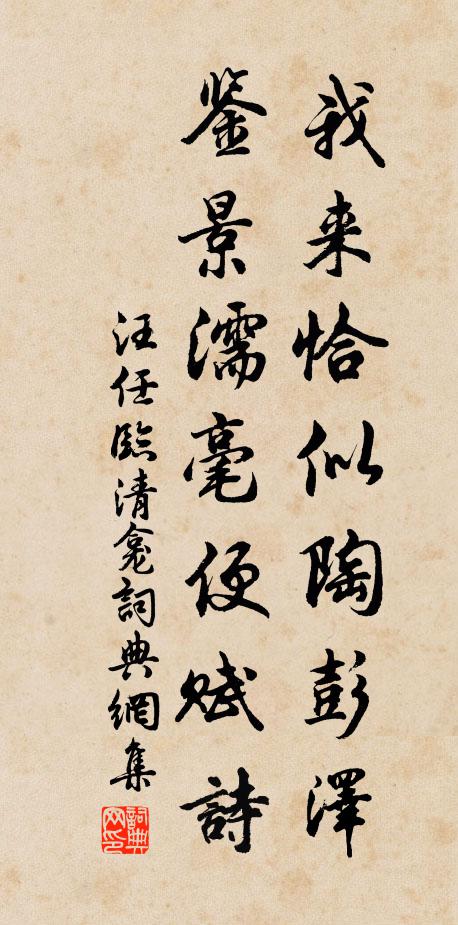 我来恰似陶彭澤
鉴景濡毫便赋詩
汪任臨清龛詞典網集
詞典网印